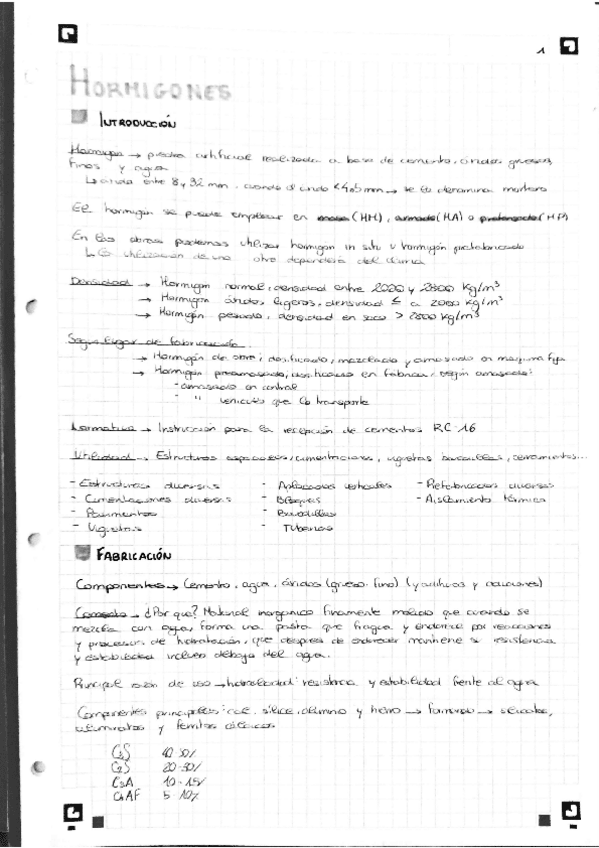 1
HORMIGONES
INTRODUCCIÓN
Hormigón → piedra artificial realizada a base de cemento, áridos gruesos,
finos y agua
↳ árido entre 8 y 32 mm, cuando el árido < 4,5 mm → se le denomina mortero
El hormigón se puede emplear en masa (HM), armado (HA) o pretensado (HP)
En las obras podemos utilizar hormigón in situ u hormigón prefabricado
↳ La utilización de uno u otro dependerá del clima
Densidad → Hormigón normal, densidad entre 2000 y 2800 Kg/m³
→ Hormigón áridos ligeros, densidad ≤ a 2000 Kg/m³
→ Hormigón pesado, densidad en seco > 2800 Kg/m³
Según lugar de fabricación.
→ Hormigón de obra, dosificado, mezclado y amasado en maquina fija
→ Hormigón preamasado, dosificado en fabrica, según amasado:
- amasado en central
- " vehiculo que lo transporte
Normativa → Instrucción para la recepción de cementos RC-16
Utilidad → Estructuras espaciales, cimentaciones, viguetas, bovedillas, cerramientos...
- Estructuras diversas - Aplacados verticales - Prefabricados diversos
- Cimentaciones diversas - Bloques - Aislamiento térmico
- Pavimentos - Bovedillas
- Viguetas - Tuberias
FABRICACIÓN
Componentes → Cemento, agua, áridos (grueso-fino) (y aditivos y adiciones)
Cemento → ¿Por que? Material inorganico finamente molido que cuando se
mezcla con agua, forma una pasta que fragua y endurece por reacciones
y procesos de hidratación, que despues de endurecer mantiene su resistencia
y estabilidad incluso debajo del agua.
Principal razón de uso → hidraulicidad: resistencia y estabilidad frente al agua
Componentes principales: cal, silice, alumino y hierro → formando → silicatos,
aluminatos y ferritos cálcicos
C₃S 40-50%
C₂S 20-30%
C₃A 10-15%
C₄AF 5-10%